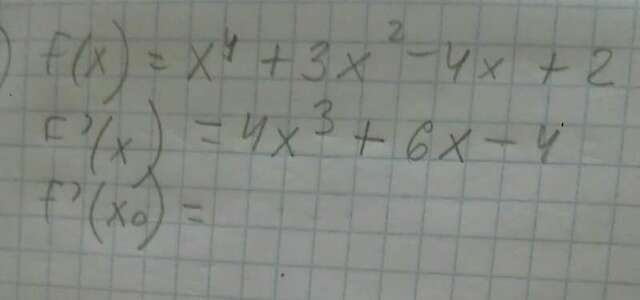 ) f(x) = x⁴ + 3x² - 4x + 2
f'(x) = 4x³ + 6x - 4
f'(x₀) =